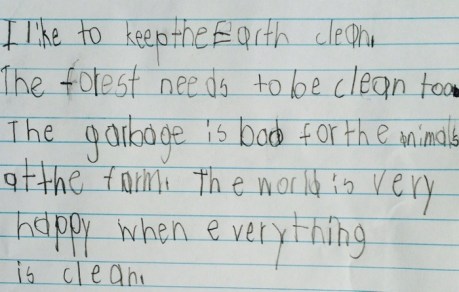 I like to keep the Earth clean.
The forest needs to be clean too.
The garbage is bad for the animals
at the farm. The world is very
happy when everything
is clean.